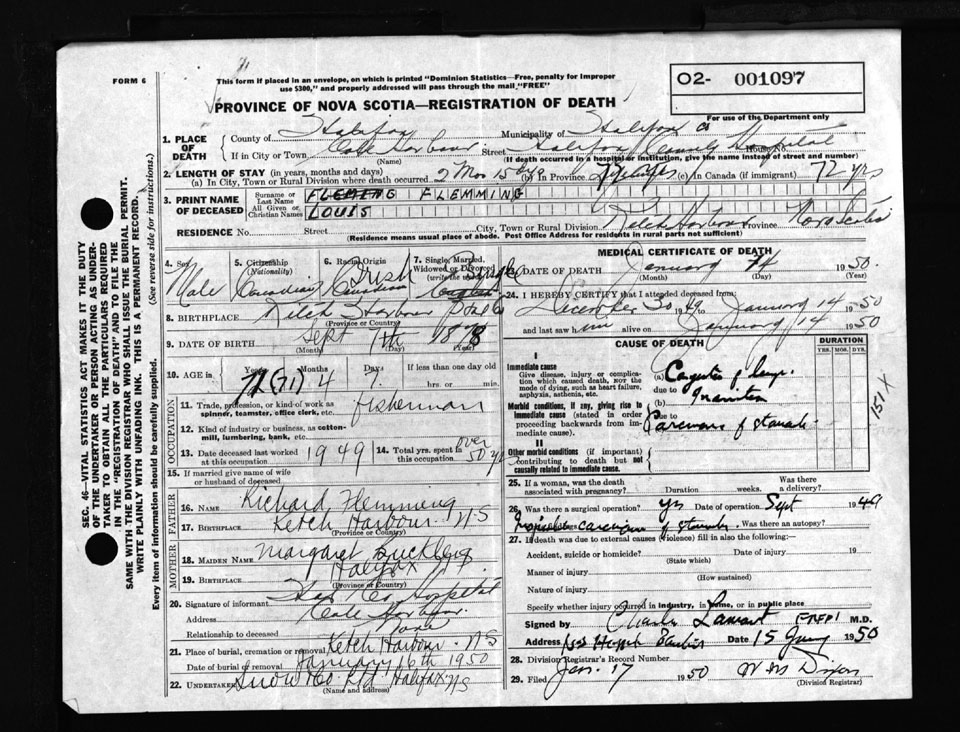 FORM 6
This form if placed in an envelope, on which is printed "Dominion Statistics—Free, penalty for improper
use $300," and properly addressed will pass through the mail "FREE"
O2- 001097
For use of the Department only
PROVINCE OF NOVA SCOTIA—REGISTRATION OF DEATH
1. PLACE OF DEATH
County of Halifax Municipality of Halifax Co
If in City or Town Cole Harbour Street Halifax County Hospital House No.
(Name) (If death occurred in a hospital or institution, give the name instead of street and number)
2. LENGTH OF STAY (in years, months and days)
(a) In City, Town or Rural Division where death occurred 2 Mos 15 dys (b) In Province 72 yrs (c) In Canada (if immigrant) 72 yrs
3. PRINT NAME OF DECEASED
Surname or Last Name FLEMING FLEMMING
All Given or Christian Names LOUIS
RESIDENCE No. Street City, Town or Rural Division Ketch Harbour Province Nova Scotia
(Residence means usual place of abode. Post Office Address for residents in rural parts not sufficient)
4. Sex Male
5. Citizenship (Nationality) Canadian
6. Racial Origin Irish Canadian
7. Single, Married, Widowed or Divorced (write the word) Single
8. BIRTHPLACE Ketch Harbour
(Province or County)
9. DATE OF BIRTH Sept 7th 1878
(Month) (Day) (Year)
10. AGE in Years Months Days If less than one day old
72 (71) 4 7. hrs. or min.
OCCUPATION
11. Trade, profession, or kind of work as spinner, teamster, office clerk, etc. fisherman
12. Kind of industry or business, as cotton-mill, lumbering, bank, etc.
13. Date deceased last worked at this occupation 1949
14. Total yrs. spent in this occupation over 50 yrs
15. If married give name of wife or husband of deceased
FATHER
16. NAME Richard Flemming
17. BIRTHPLACE Ketch Harbour N S
(Province or County)
MOTHER
18. MAIDEN NAME Margaret
19. BIRTHPLACE Halifax
(Province or County)
20. Signature of informant Hfx Co Hospital
Address Cole Harbour
Relationship to deceased None
21. Place of burial, cremation or removal Ketch Harbour. N S
Date of burial or removal January 16th 1950
22. UNDERTAKER Snow & Co Ltd Halifax NS
(Name and address)
MEDICAL CERTIFICATE OF DEATH
23. DATE OF DEATH January 14 1950.
(Month) (Day)
24. I HEREBY CERTIFY that I attended deceased from:
December 30 1949 to January 14 1950
and last saw him alive on January 14 1950
CAUSE OF DEATH
DURATION
YRS. MOS. DYS.
I
Immediate cause
Give disease, injury or complication which caused death, not the mode of dying, such as heart failure, asphyxia, asthenia, etc.
(a)
due to
Morbid conditions, if any, giving rise to immediate cause (stated in order proceeding backwards from immediate cause).
(b) Inanition
due to
Carcinoma of stomach
II
Other morbid conditions (if important) contributing to death but not causally related to immediate cause.
151X
25. If a woman, was the death associated with pregnancy? Duration weeks. Was there a delivery?
26. Was there a surgical operation? yes Date of operation Sept 1949
Inoperable carcinoma of stomach. Was there an autopsy?
27. If death was due to external causes (violence) fill in also the following:—
Accident, suicide or homicide? Date of injury 19
(State which)
Manner of injury
(How sustained)
Nature of injury
Specify whether injury occurred in industry, in home, or in public place
Signed by Charles M.D.
Address Date 15 Jany 1950
28. Division Registrar's Record Number
29. Filed Jan. 17 1950
(Division Registrar)
SEC. 46—VITAL STATISTICS ACT MAKES IT THE DUTY
OF THE UNDERTAKER OR PERSON ACTING AS UNDER-
TAKER TO OBTAIN ALL THE PARTICULARS REQUIRED
IN THE "REGISTRATION OF DEATH" AND TO FILE THE
SAME WITH THE DIVISION REGISTRAR WHO SHALL ISSUE THE BURIAL PERMIT.
WRITE PLAINLY WITH UNFADING INK. THIS IS A PERMANENT RECORD.
Every item of information should be carefully supplied. (See reverse side for instructions.)